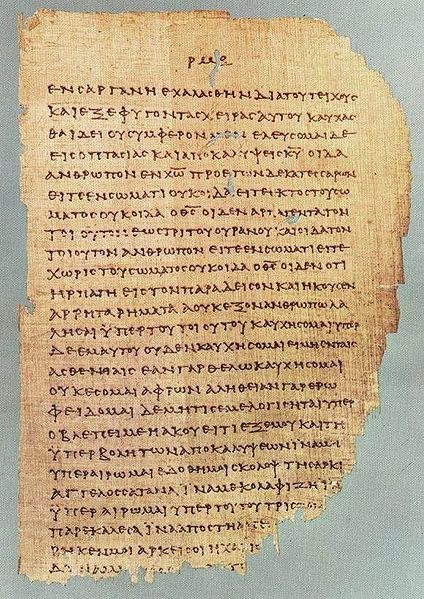 ΕΝ ΣΑΡΓΑΝΗ ΕΧΑΛΑΣΘΗΝ ΔΙΑ ΤΟΥ ΤΕΙΧΟΥΣ
ΚΑΙ ΕΞΕΦΥΓΟΝ ΤΑΣ ΧΕΙΡΑΣ ΑΥΤΟΥ ΚΑΥΧΑΣ
ΘΑΙ ΔΕΙ ΟΥ ΣΥΜΦΕΡΟΝ ΕΛΕΥΣΟΜΑΙ ΔΕ
ΕΙΣ ΟΠΤΑΣΙΑΣ ΚΑΙ ΑΠΟΚΑΛΥΨΕΙΣ Κ̅Υ̅ ΟΙΔΑ
ΑΝΘΡΩΠΟΝ ΕΝ Χ̅Ω̅ ΠΡΟ ΕΤΩΝ ΔΕΚΑΤΕΣΣΑΡΩΝ
ΕΙΤΕ ΕΝ ΣΩΜΑΤΙ ΟΥΚ ΟΙΔΑ ΕΙΤΕ ΕΚΤΟΣ ΤΟΥ ΣΩ
ΜΑΤΟΣ ΟΥΚ ΟΙΔΑ Ο Θ̅Σ̅ ΟΙΔΕΝ ΑΡΠΑΓΕΝΤΑ ΤΟΝ
ΤΟΙΟΥΤΟΝ ΕΩΣ ΤΡΙΤΟΥ ΟΥΡΑΝΟΥ ΚΑΙ ΟΙΔΑ ΤΟΝ
ΤΟΙΟΥΤΟΝ ΑΝΘΡΩΠΟΝ ΕΙΤΕ ΕΝ ΣΩΜΑΤΙ ΕΙΤΕ
ΧΩΡΙΣ ΤΟΥ ΣΩΜΑΤΟΣ ΟΥΚ ΟΙΔΑ Ο Θ̅Σ̅ ΟΙΔΕΝ ΟΤΙ
ΗΡΠΑΓΗ ΕΙΣ ΤΟΝ ΠΑΡΑΔΕΙΣΟΝ ΚΑΙ ΗΚΟΥΣΕΝ
ΑΡΡΗΤΑ ΡΗΜΑΤΑ Α ΟΥΚ ΕΞΟΝ ΑΝΘΡΩΠΩ ΛΑ
ΛΗΣΑΙ ΥΠΕΡ ΤΟΥ ΤΟΙΟΥΤΟΥ ΚΑΥΧΗΣΟΜΑΙ ΥΠΕΡ
ΔΕ ΕΜΑΥΤΟΥ ΟΥΔΕΝ ΚΑΥΧΗΣΟΜΑΙ ΕΙ ΜΗ ΕΝ ΤΑΙΣ
ΑΣΘΕΝΕΙΑΙΣ ΕΑΝ ΓΑΡ ΘΕΛΩ ΚΑΥΧΗΣΟΜΑΙ
ΟΥΚ ΕΣΟΜΑΙ ΑΦΡΩΝ ΑΛΗΘΕΙΑΝ ΓΑΡ ΕΡΩ
ΦΕΙΔΟΜΑΙ ΔΕ ΜΗ ΤΙΣ ΕΜΕ ΛΟΓΙΣΗΤΑΙ ΥΠΕΡ
Ο ΒΛΕΠΕΙ ΜΕ Η ΑΚΟΥΕΙ ΤΙ ΕΞ ΕΜΟΥ ΚΑΙ ΤΗ
ΥΠΕΡΒΟΛΗ ΤΩΝ ΑΠΟΚΑΛΥΨΕΩΝ ΙΝΑ ΜΗ
ΥΠΕΡΑΙΡΩΜΑΙ ΕΔΟΘΗ ΜΟΙ ΣΚΟΛΟΨ ΤΗ ΣΑΡΚΙ
ΑΓΓΕΛΟΣ ΣΑΤΑΝΑ ΙΝΑ ΜΕ ΚΟΛΑΦΙΖΗ
ΥΠΕΡΑΙΡΩΜΑΙ ΥΠΕΡ ΤΟΥΤΟΥ ΤΡΙΣ
ΠΑΡΕΚΑΛΕΣΑ ΙΝΑ ΑΠΟΣΤΗ
ΡΗΚΕΝ ΜΟΙ ΑΡΚΕΙ ΣΟΙ Η ΧΑΡΙΣ